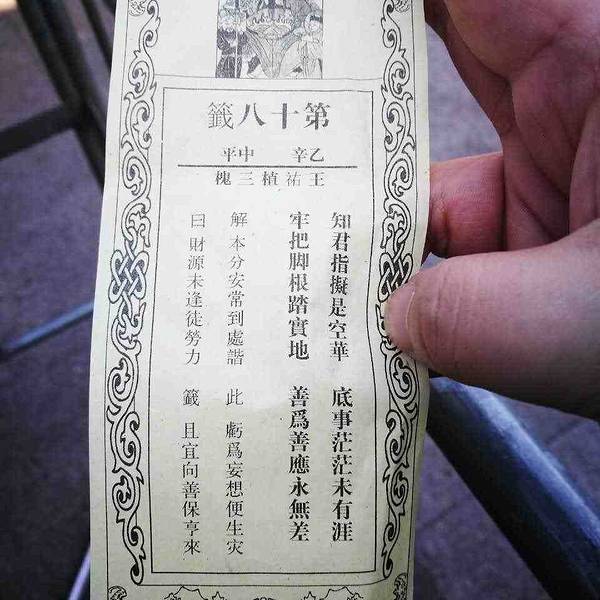 第十八籤
乙辛 中平
王祐植三槐
知君指擬是空華 底事茫茫未有涯
牢把脚根踏實地 善爲善應永無差
解 本分安常到處諧 此 虧爲妄想便生灾
曰 財源未逢徒勞力 籤 且宜向善保亨來